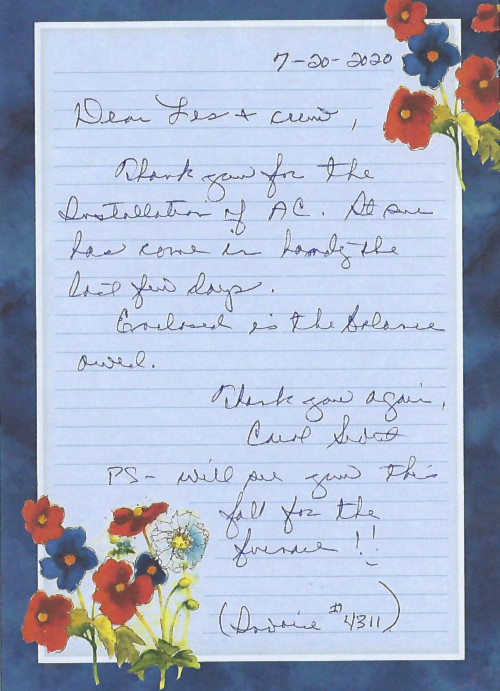 7-20-2020
Dear Les + crew,
Thank you for the
Installation of AC. It sure
has come in handy the
last few days.
Enclosed is the balance
owed.
Thank you again,
Carol
PS- will see you this
fall for the
furnace !!
(Invoice #4311)